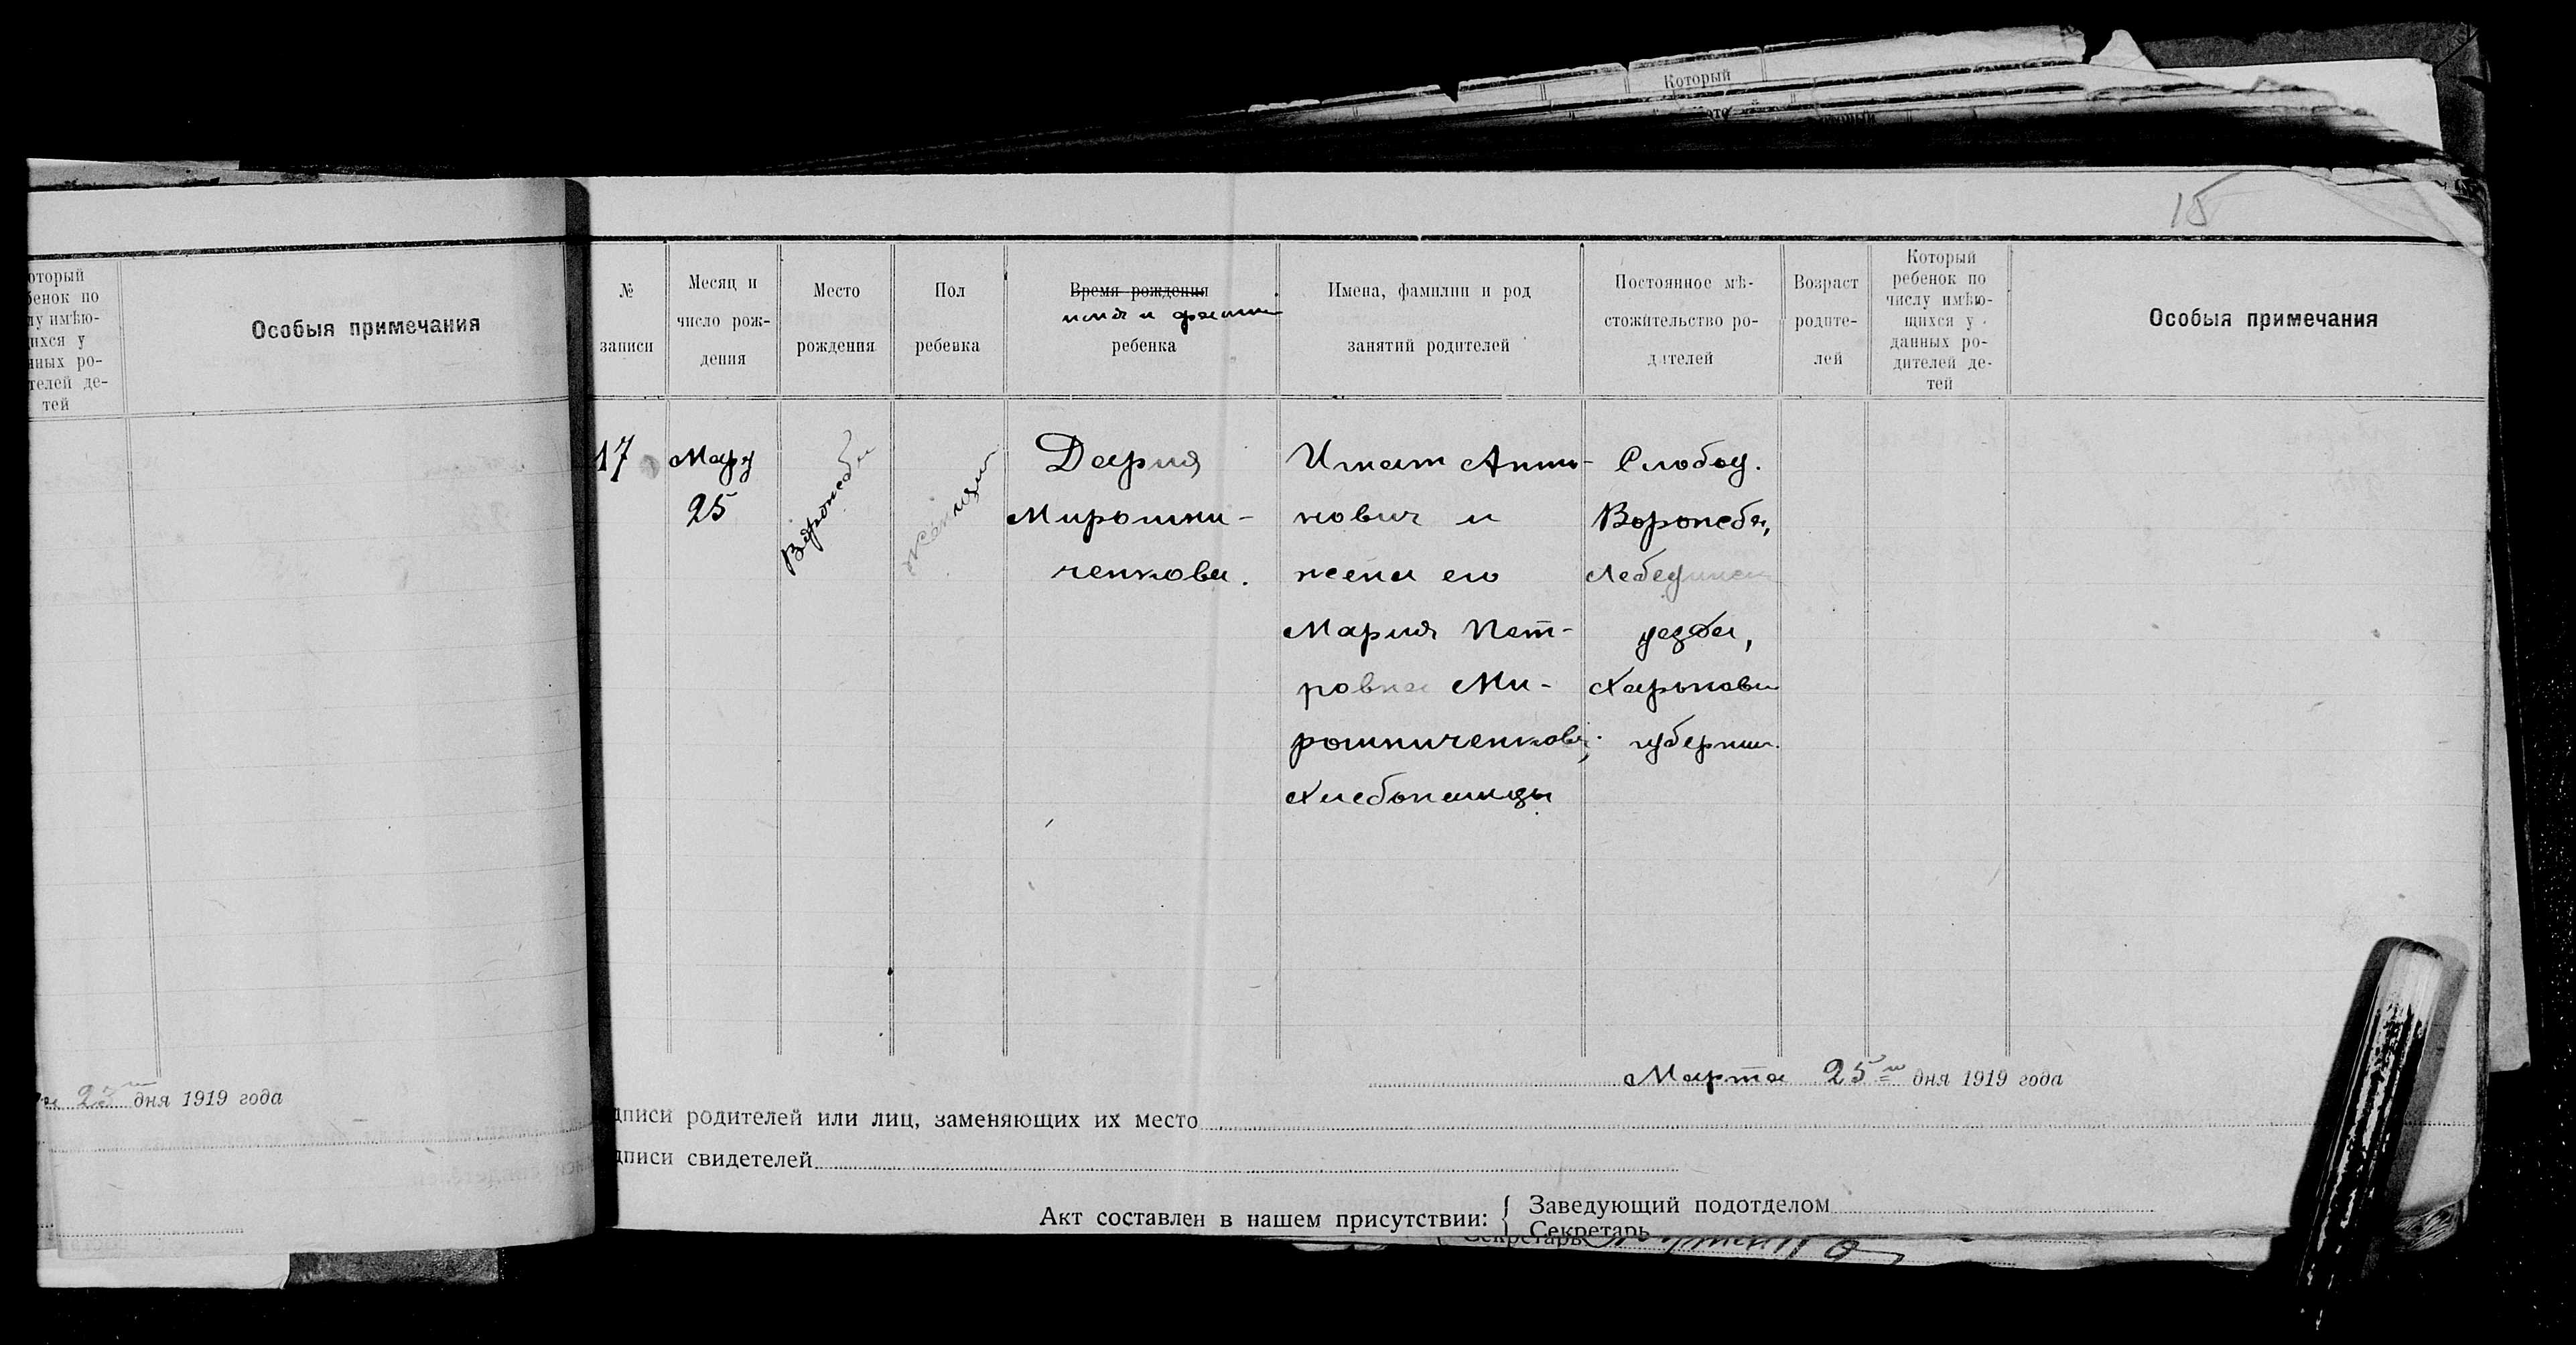 Который
15
оторый
бенок по
лу имѣю-
щихся у
нных ро-
телей де-
тей
Особыя примечания
№
записи
Месяц и
число рож-
дения
Место
рождения
Пол
ребенка
Время рождения
имя и фамил
ребенка
Имена, фамилии и род
занятий родителей
Постоянное мѣ-
стожительство ро-
дителей
Возраст
родите-
лей
Который
ребенок по
числу имѣю-
щихся у
данных ро-
дителей де-
тей
Особыя примечания
17
Март
25
Ворожба
женщин
Дария
Мирошни-
ченкова.
Игнат Анто-
нович и
жена его
Мария Пет-
ровна Ми-
рошниченковы;
хлебопашцы
Слобод.
Ворожба,
Лебединск
уезда,
Харьков
губернии.
23 дня 1919 года
Марта 25 го дня 1919 года
дписи родителей или лиц, заменяющих их место
дписи свидетелей
Акт составлен в нашем присутствии:
Заведующий подотделом
Секретарь
Секретарь